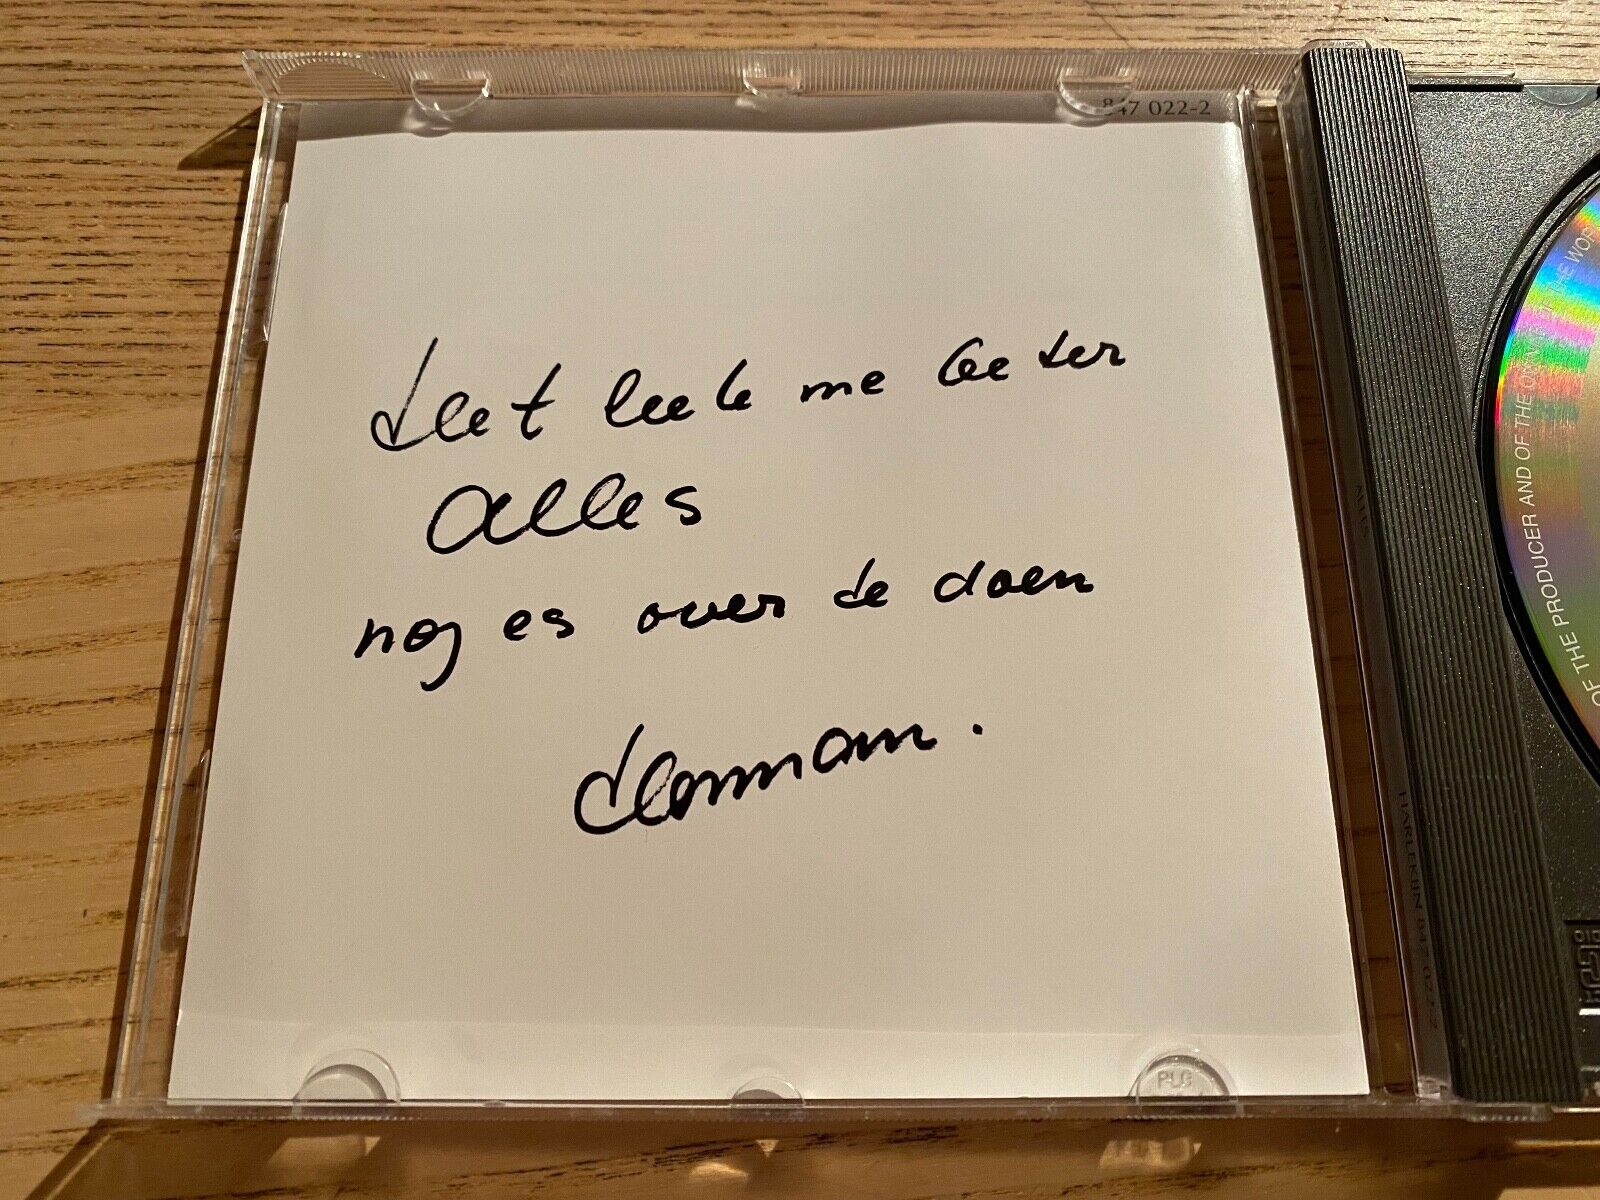 847 022-2
Het leek me beter
alles
nog es over te doen
Herman.
OF THE PRODUCER AND OF THE OWNER OF THE WOR
HARLEKIJN
PLG